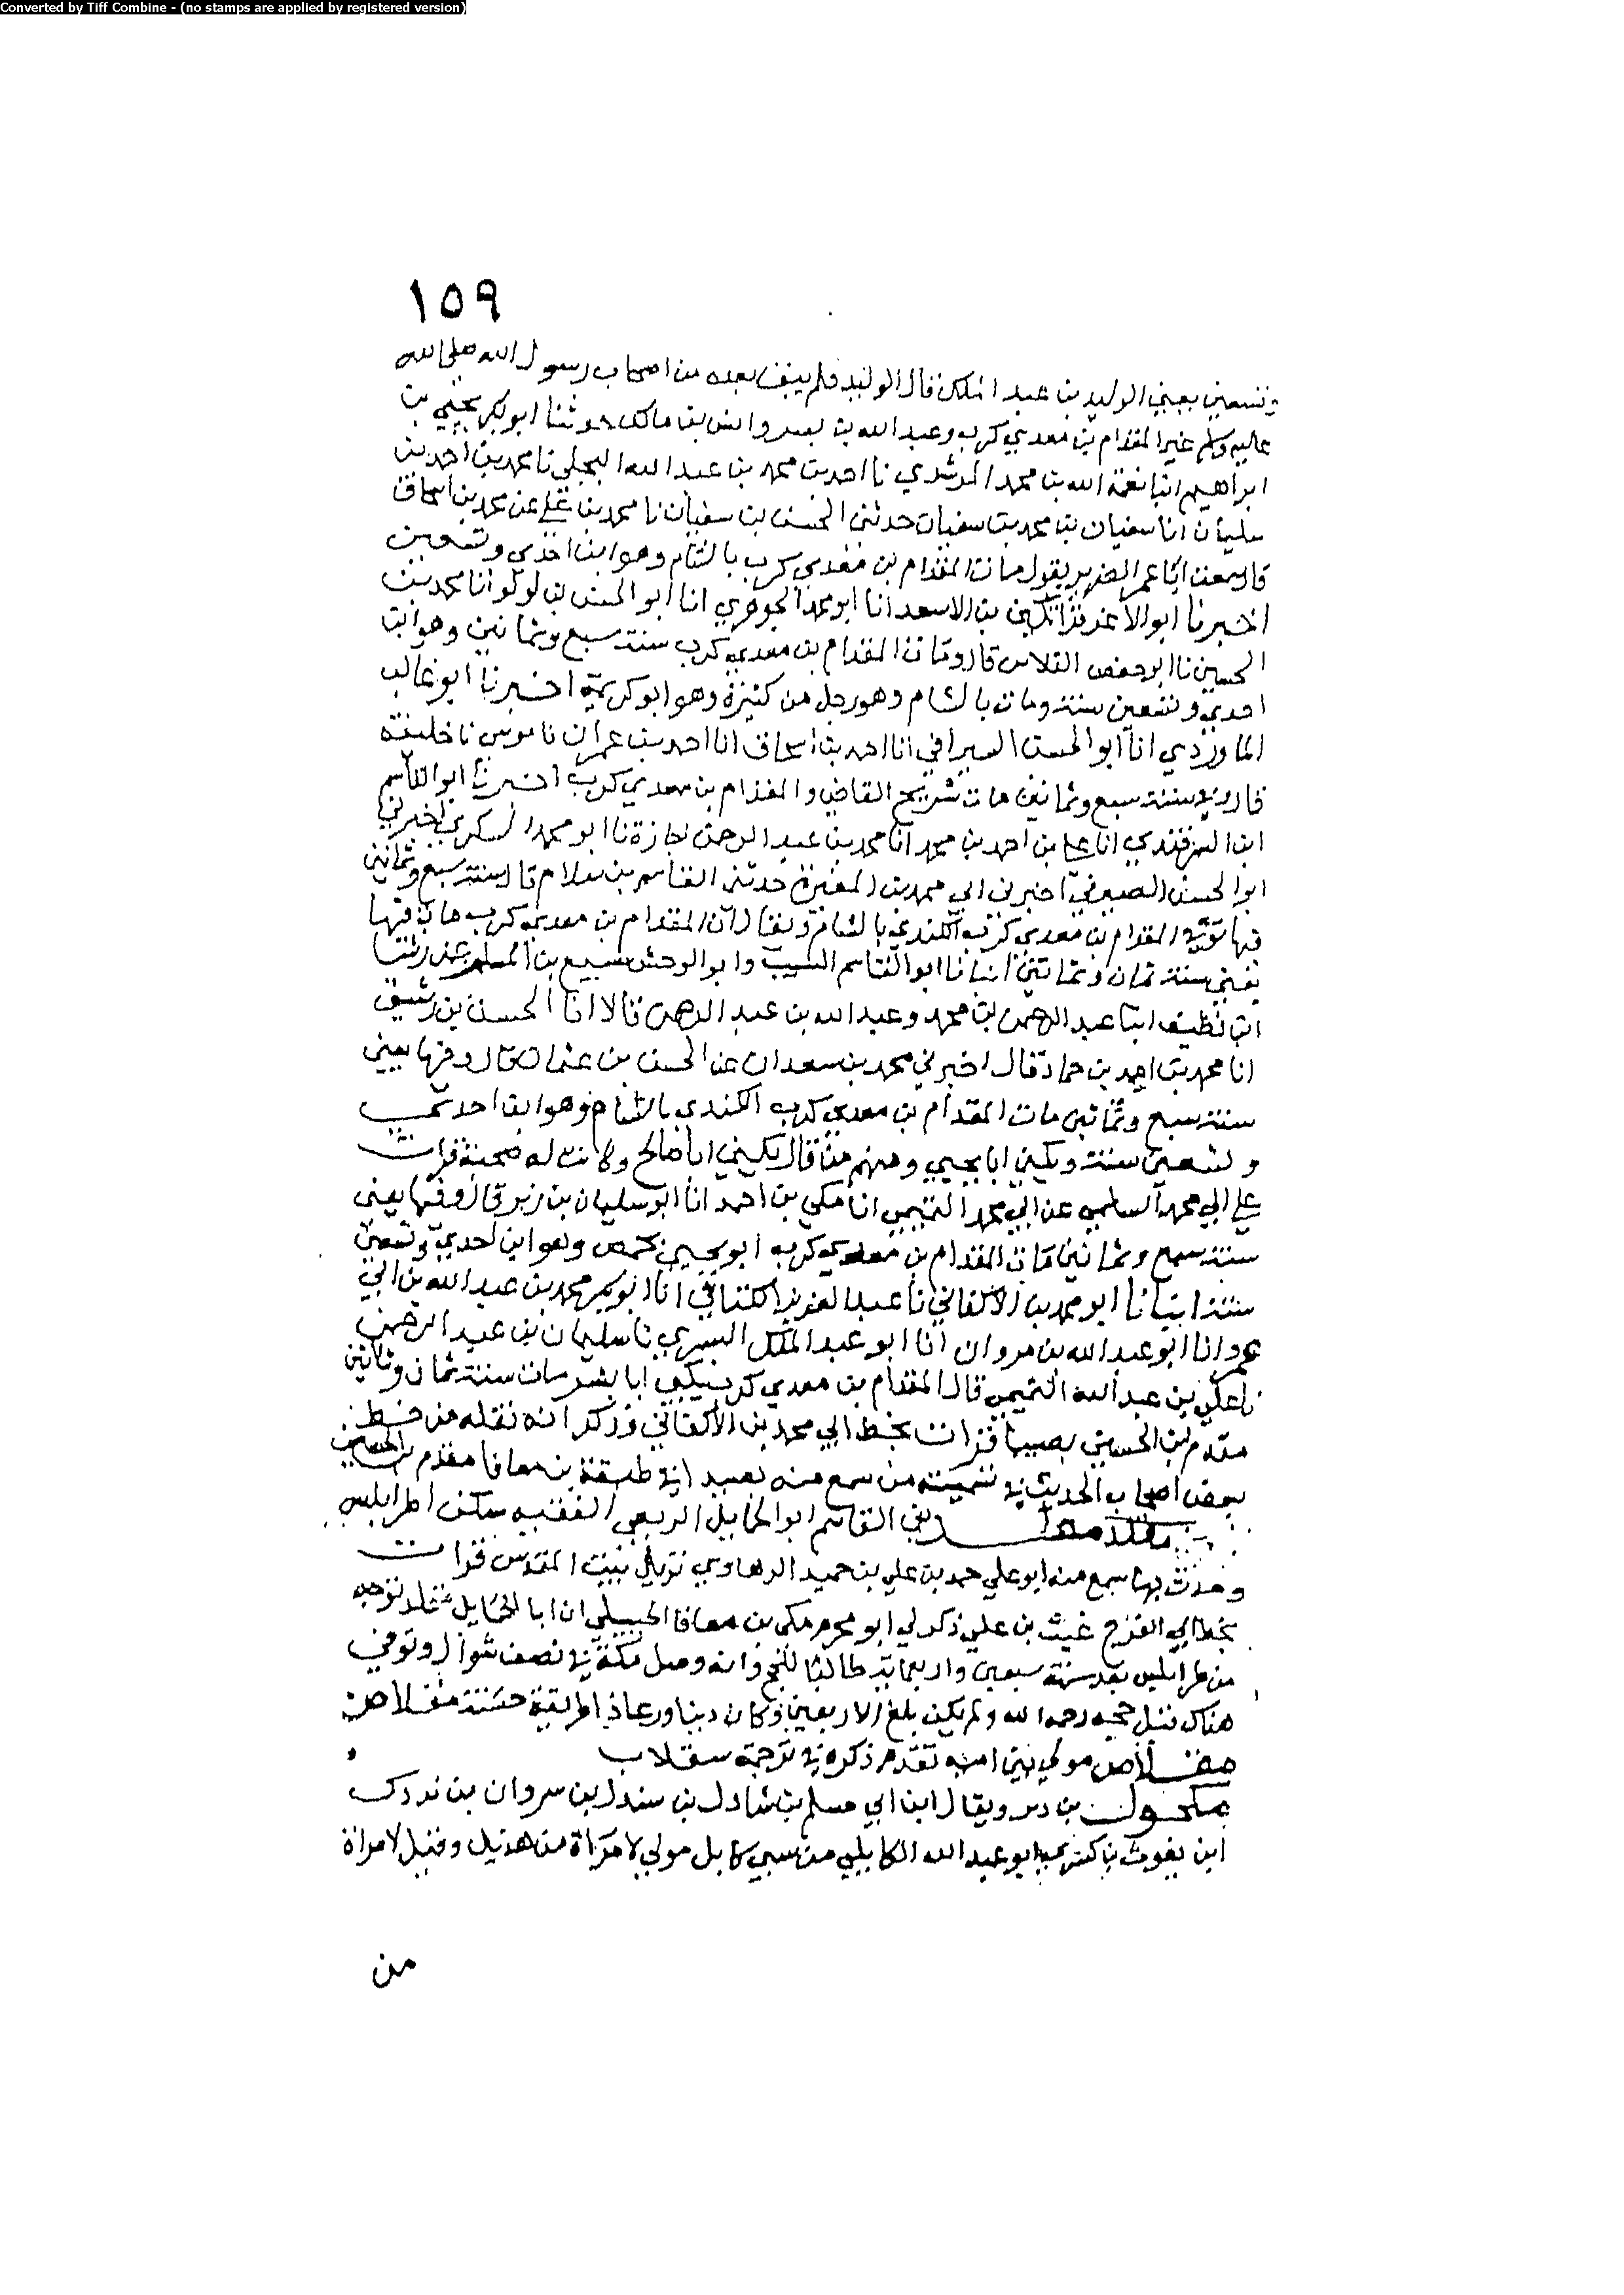 Converted by Tiff Combine - (no stamps are applied by registered version)
١٥٩
وتسعين يعني الوليد بن عبد الملك قال الوليد فلم يبق بعده من اصحاب رسول الله صلى الله
عليه وسلم غير المقدام بن معدي كرب وعبد الله بن بسر وانس بن مالك حدثنا ابو بكر يحيى بن
ابراهيم انبا نعمة الله بن محمد المرشدي نا احمد بن محمد بن عبد الله البجلي نا محمد بن احمد بن
سليمان انا سفيان بن محمد بن سفيان حدثني الحسن بن سفيان نا محمد بن علي عن محمد بن اسحاق
قال سمعت ابا عمر الضرير يقول مات المقدام بن معدي كرب بالشام وهو ابن احدى وتسعين
اخبرنا ابو الاعز قراتكين بن الاسعد انا ابو محمد الجوهري انا ابو الحسن بن لولو انا محمد بن
الحسين نا ابو حفص الفلاس قال ومات المقدام بن معدي كرب سنة سبع وثمانين وهو ابن
احدى وتسعين سنة ومات بالشام وهو رجل من كندة وهو ابو كريمة اخبرنا ابو غالب
الماوردي انا ابو الحسن السيرافي انا احمد بن اسحاق انا احمد بن عمران نا موسى نا خليفة
قال وفي سنة سبع وثمانين مات شريح القاضي والمقدام بن معدي كرب اخبرنا ابو القاسم
ابن السمرقندي انا علي بن احمد بن محمد انا محمد بن عبد الرحمن اجازة نا ابو محمد السكري اخبرني
ابو الحسن الصيرفي اخبرني ابي محمد بن المغيرة حدثني القاسم بن سلام قال سنة سبع وثمانين
فيها توفي المقدام بن معدي كرب الكندي بالشام ويقال ان المقدام بن معدي كرب مات فيها
يعني سنة ثمان وثمانين انبانا ابو القاسم النسيب وابو الوحش سبيع بن المسلم عن رشا
ابن نظيف انبا عبد الرحمن بن محمد وعبد الله بن عبد الرحمن قالا انا الحسن بن رشيق
انا محمد بن احمد بن حماد قال اخبرني محمد بن سعدان عن الحسن بن عثمان قال وفيها يعني
سنة سبع وثمانين مات المقدام بن معدي كرب الكندي بالشام وهو ابن احدى
وتسعين سنة ويكنى ابا يحيى ومنهم من قال يكنى ابا صالح وكانت له صحبة قرات
على ابي محمد السلمي عن ابي محمد التميمي انا مكي بن احمد انا ابو سليمان بن زبر قال وفيها يعني
سنة سبع وثمانين مات المقدام بن معدي كرب ابو يحيى بحمص وهو ابن احدى وتسعين
سنة انبانا ابو محمد بن الاكفاني نا عبد العزيز الكتاني انا ابو بكر محمد بن عبد الله بن ابي
عمرو انا ابو عبد الله بن مروان انا ابو عبد الملك البسري نا سليمان بن عبد الرحمن
نا علي بن عبد الله التميمي قال المقدام بن معدي كرب يكنى ابا بشر مات سنة ثمان وثمانين
مقدم بن الحسين قرات بخط ابي محمد بن الاكفاني وذكر انه نقله من خط
بعض اصحاب الحديث في تسمية من سمع منه طبقة بن معافا مقدم بن الحسين
بن القاسم ابو الحمايل الربعي الفقيه سكن اطرابلس
وحدث بها سمع منه ابو علي حمد بن علي بن حميد الرهاوي نزيل بيت المقدس قرات
بخط ابي الفرج غيث بن علي ذكر لي ابو محرم مكي بن معافا الجبيلي ان ابا الحمايل مقلد توجه
من طرابلس بعد سنة سبعين واربعماية طالبا للحج وانه وصل مكة في نصف شوال وتوفي
هناك قبل حجه رحمه الله ولم يكن بلغ الاربعين وكان دينا ورعا ذا طريقة حسنة مقلاص
مقلاص مولى بني امية تقدم ذكره في ترجمة سقلاب
مكحول بن دبر ويقال ابن ابي مسلم بن شاذل بن سندل بن سروان بن نردك
ابن يغوث بن كسرى ابو عبد الله الكابلي من سبي كابل مولى لامراة من هذيل وقيل لامراة
من